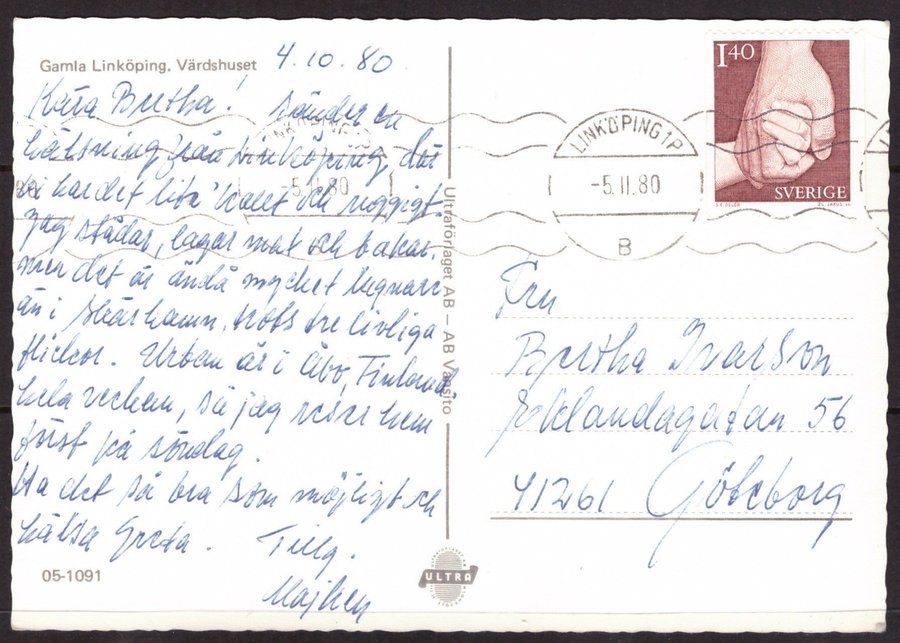 Gamla Linköping. Värdshuset
4.10.80
Kära Bertha! Sänder en
hälsning från Linköping, där
vi har det lite kallt och ruggigt.
Jag städar, lagar mat och bakar,
men det är ändå mycket lugnare
än i Skärhamn, trots tre livliga
flickor. Urban är i Åbo, Finland
hela veckan, så jag reser hem
först på söndag.
Ha det så bra som möjligt och
hälsa Greta. Tillg.
Majken
05-1091
Ultraförlaget AB – AB Vansito
ULTRA
LINKÖPING 1P
-5.11.80
B
LINKÖPING
-5.11.80
80
1.40
SVERIGE
Fru
Bertha Ivarson
56
41261 Göteborg